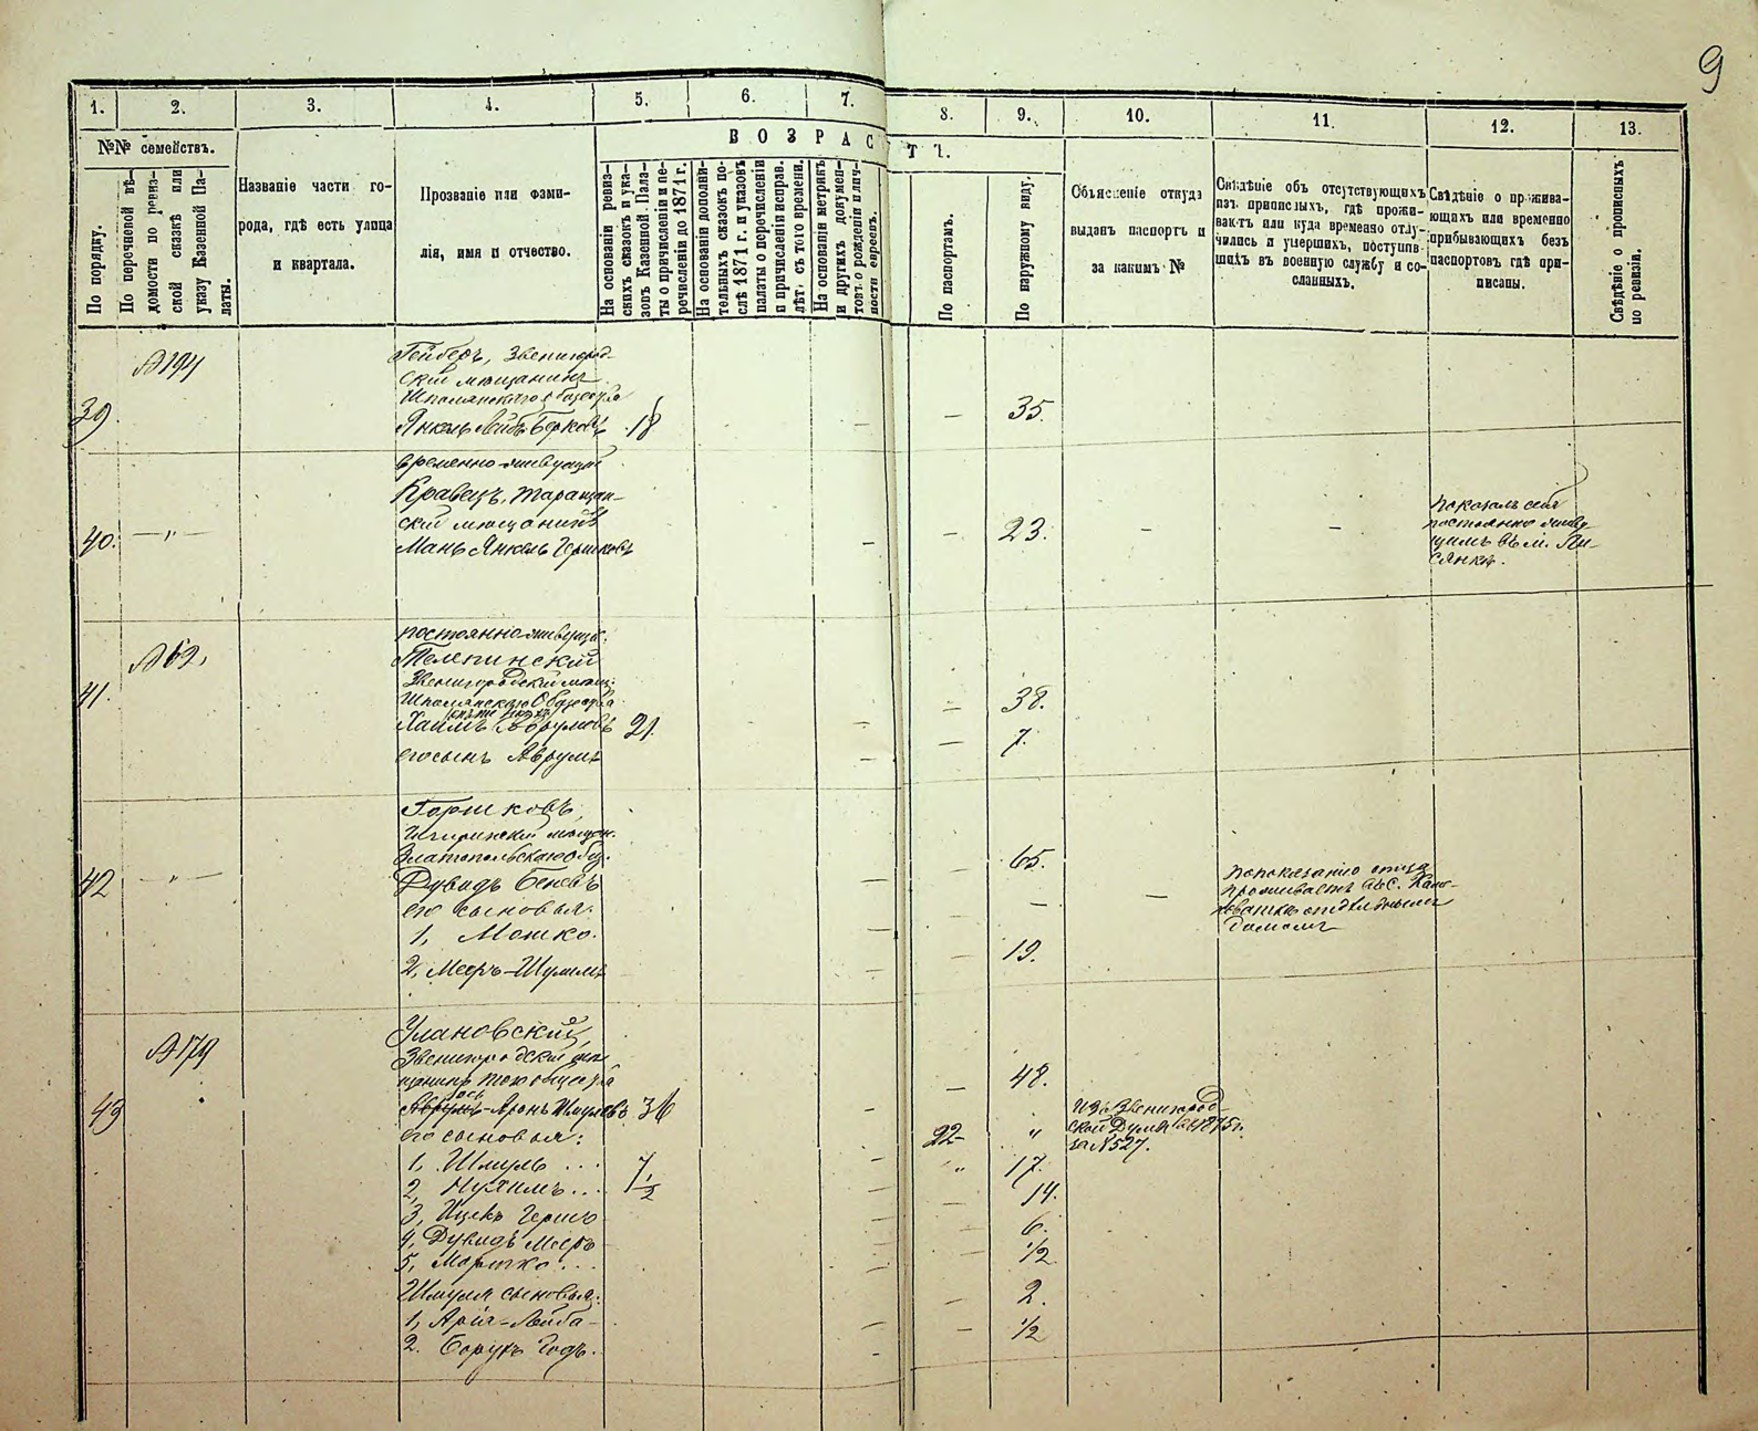 9
1. 2. 3. 4. 5. 6. 7. 8. 9. 10. 11. 12. 13.
№№ семействъ.
По порядку.
По перечневой вѣ-
домости по ревиз-
ской сказкѣ или
указу Казенной Па-
латы.
Названіе части го-
рода, гдѣ есть улица
и квартала.
Прозваніе или фами-
лія, имя и отчество.
ВОЗРАСТЪ.
На основаніи ревиз-
скихъ сказокъ и ука-
зовъ Казенной Пала-
ты о причисленіи и пе-
речисленіи до 1871 г.
На основаніи дополни-
тельныхъ сказокъ по-
слѣ 1871 г. и указовъ
палаты о перечисленіи
и причисленіи исправ.
лѣтъ, съ того времени.
На основаніи метрикъ
и другихъ докумен-
товъ о рожденіи и лич-
ности евреевъ.
По паспортамъ.
По наружному виду.
Объясненіе откуда
выданъ паспортъ и
за какимъ №
Свѣдѣніе объ отсутствующихъ
изъ приписныхъ, гдѣ прожи-
ваютъ или куда временно отлу-
чились и умершихъ, поступив-
шихъ въ военную службу и со-
сланныхъ.
Свѣдѣніе о прожива-
ющихъ или временно
прибывающихъ безъ
паспортовъ гдѣ при-
писаны.
Свѣдѣніе о прописныхъ
по ревизіи.
39.
№194
Гейберъ, Звенигород-
скій мѣщанинъ
Шполянскаго общества
Янкель Лейбъ Берковъ 18 — — 35.
временно-живущій
40. — „ —
Кравецъ, Таращан-
скій мѣщанинъ
Мань Янкель Гершковъ — — 23. — —
показалъ себя
постоянно живу-
щимъ въ м. Лы-
сянкѣ.
постоянно-живущіе:
41.
№62.
Телепинскій
Звенигородскій мѣщ.
Шполянскаго Общества
Хаимъ Аврумовъ 21. — — 38.
его сынъ Аврумъ — — 7.
42 — „ —
Горшковъ,
Чигиринскій мѣщан.
Златопольскаго Общ.
Дувидъ Беневъ — — 65.
его сыновья:
1, Мошко. — — — —
по показанію отца
проживаетъ въ с.
отдѣльнымъ
домомъ
2, Мееръ-Шулимъ — — 19.
43
№179
Улановскій,
Звенигородскій мѣ-
щанинъ того общества
Аврумъ-Аронъ Шмулевъ 36 — — 48.
его сыновья:
1, Шмуль ... 7 — 22- „
Изъ Звенигород-
ской Думы 1875 г.
за №527.
2, Нухимъ ... 1/2 — „ 17.
3, Ицко Гершо — — 14.
4, Дувидъ Мееръ — — 6.
5, Мортко ... — 1/2
Шмуля сыновья:
1, Арія-Лейба — — — 2.
2. Борухъ Годъ. — — 1/2